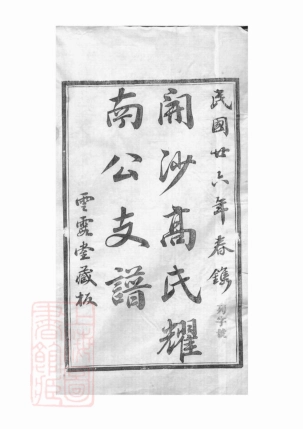 民國廿六年春鐫
開沙高氏耀
南公支譜
雲露堂藏板